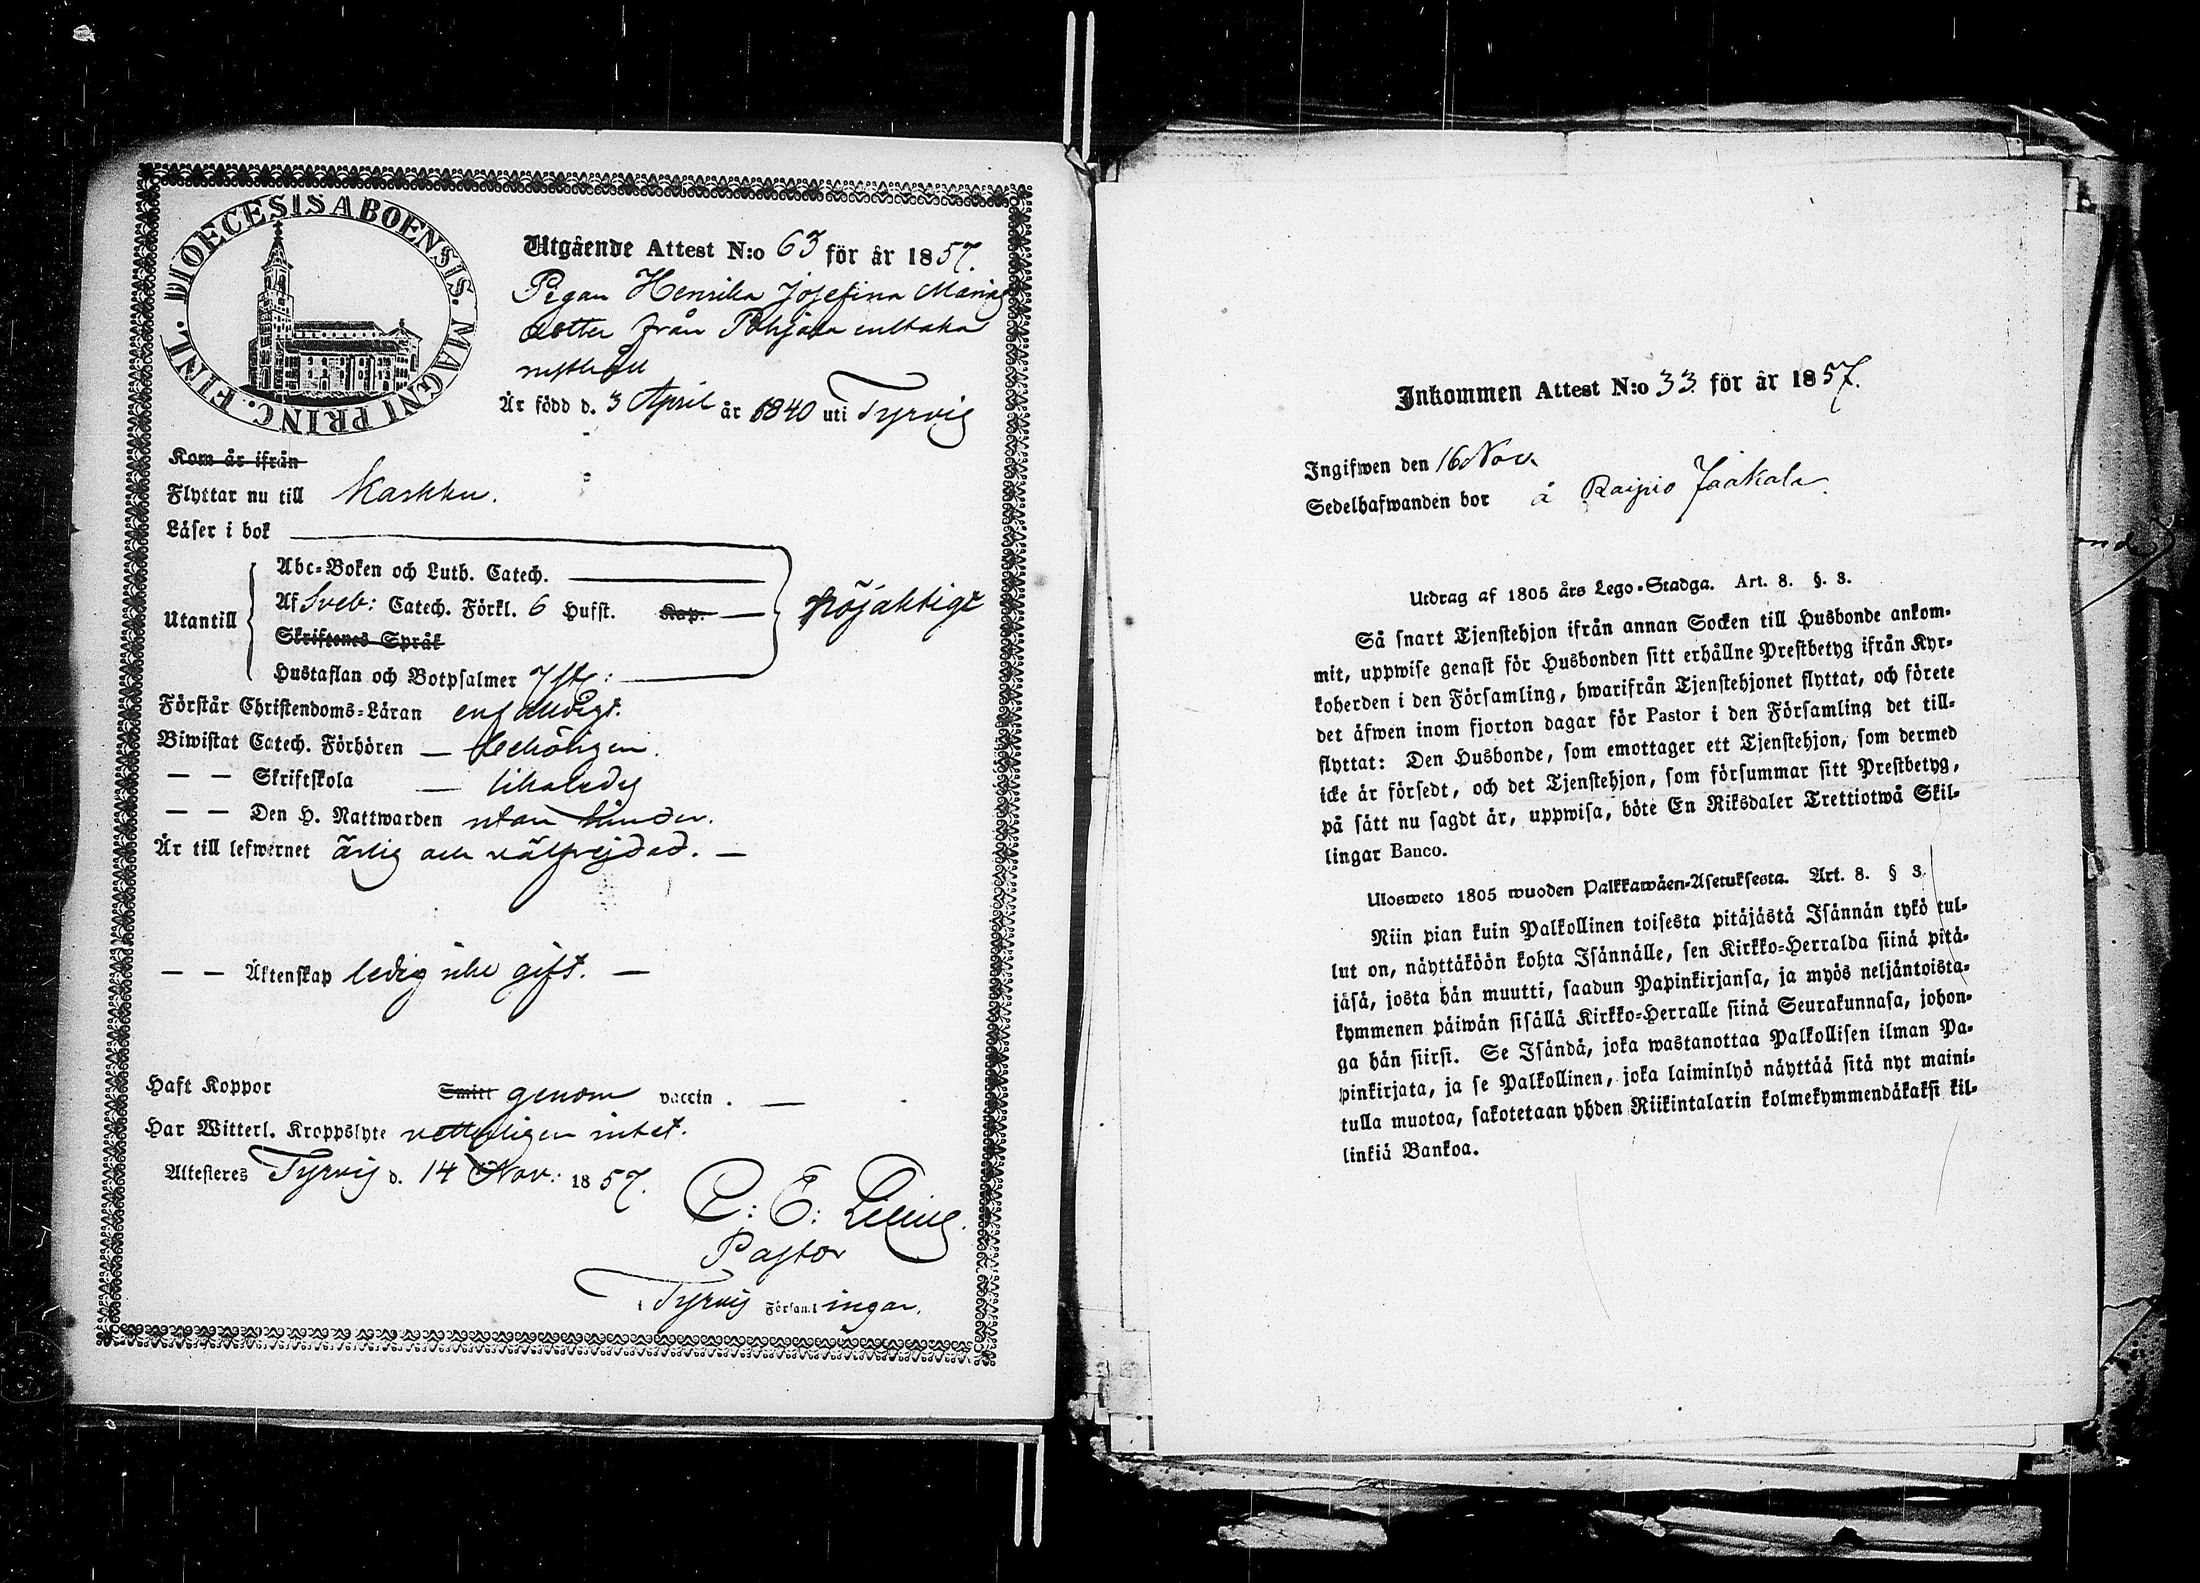 DIOECESIS ABOENSIS. MAGNI PRINC. FINL.
Utgående Attest N:o 63 för år 1857.
Pigan Henrika Josefina Marias
dotter från Pohjala
Är född d. 3 April år 1840 uti Tyrvis
Kom år ifrån
Flyttar nu till Karkku.
Läser i bok
Abc-Boken och Luth. Catech.
Utantill
Af Sveb: Catech. Förkl. 6 Hufst. Kap.
nöjaktigt
Skriftenes Språk
Hustaflan och Botpsalmer
Förstår Christendoms-Läran enfaldigt.
Biwistat Catech. Förhören — behörigen.
— — Skriftskola — likaledes
— — Den H. Nattwarden utan hinder.
Är till lefwernet ärlig och välfrejdad. —
— — Äktenskap ledig icke gift. —
Haft Koppor Smitt genom vaccin. —
Har Witterl. Kroppslyte vetterligen intet.
Attesteres Tyrvis d. 14 Nov: 1857.
C: E: Lilius.
Pastor
i Tyrvis Församlingar.
Inkommen Attest N:o 33 för år 1857.
Ingifwen den 16 Nov.
Sedelhafwanden bor å Raipio Jaakala.
Utdrag af 1805 års Lego-Stadga. Art. 8. §. 3.
Så snart Tjenstehjon ifrån annan Socken till Husbonde ankom-
mit, uppwise genast för Husbonden sitt erhållne Prestbetyg ifrån Kyr-
koherden i den Församling, hwarifrån Tjenstehjonet flyttat, och förete
det äfwen inom fjorton dagar för Pastor i den Församling det till-
flyttat: Den Husbonde, som emottager ett Tjenstehjon, som dermed
icke är försedt, och det Tjenstehjon, som försummar sitt Prestbetyg,
på sätt nu sagdt är, uppwisa, böte En Riksdaler Trettiotwå Skil-
lingar Banco.
Ulosweto 1805 wuoden Palkkawäen-Asetuksesta. Art. 8. § 3.
Niin pian kuin Palkollinen toisesta pitäjästä Isännän tykö tul-
lut on, näyttäköön kohta Isännälle, sen Kirkko-Herralda siinä pitä-
jäsä, josta hän muutti, saadun Papinkirjansa, ja myös neljäntoista-
kymmenen päiwän sisällä Kirkko-Herralle siinä Seurakunnasa, johon-
ga hän siirsi. Se Isändä, joka wastanottaa Palkollisen ilman Pa-
pinkirjata, ja se Palkollinen, joka laiminlyö näyttää sitä nyt maini-
tulla muotoa, sakotetaan yhden Riikintalarin kolmekymmendäkaksi kil-
linkiä Bankoa.